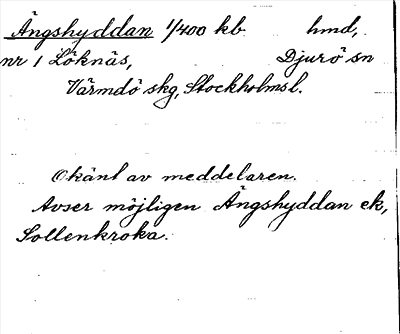 Ängshyddan 1/400 kb hmd,
nr 1 Löknäs, Djurö sn
Värmdö skg, Stockholmsl.
Okänt av meddelaren.
Avser möjligen Ängshyddan ek,
Sollenkroka.